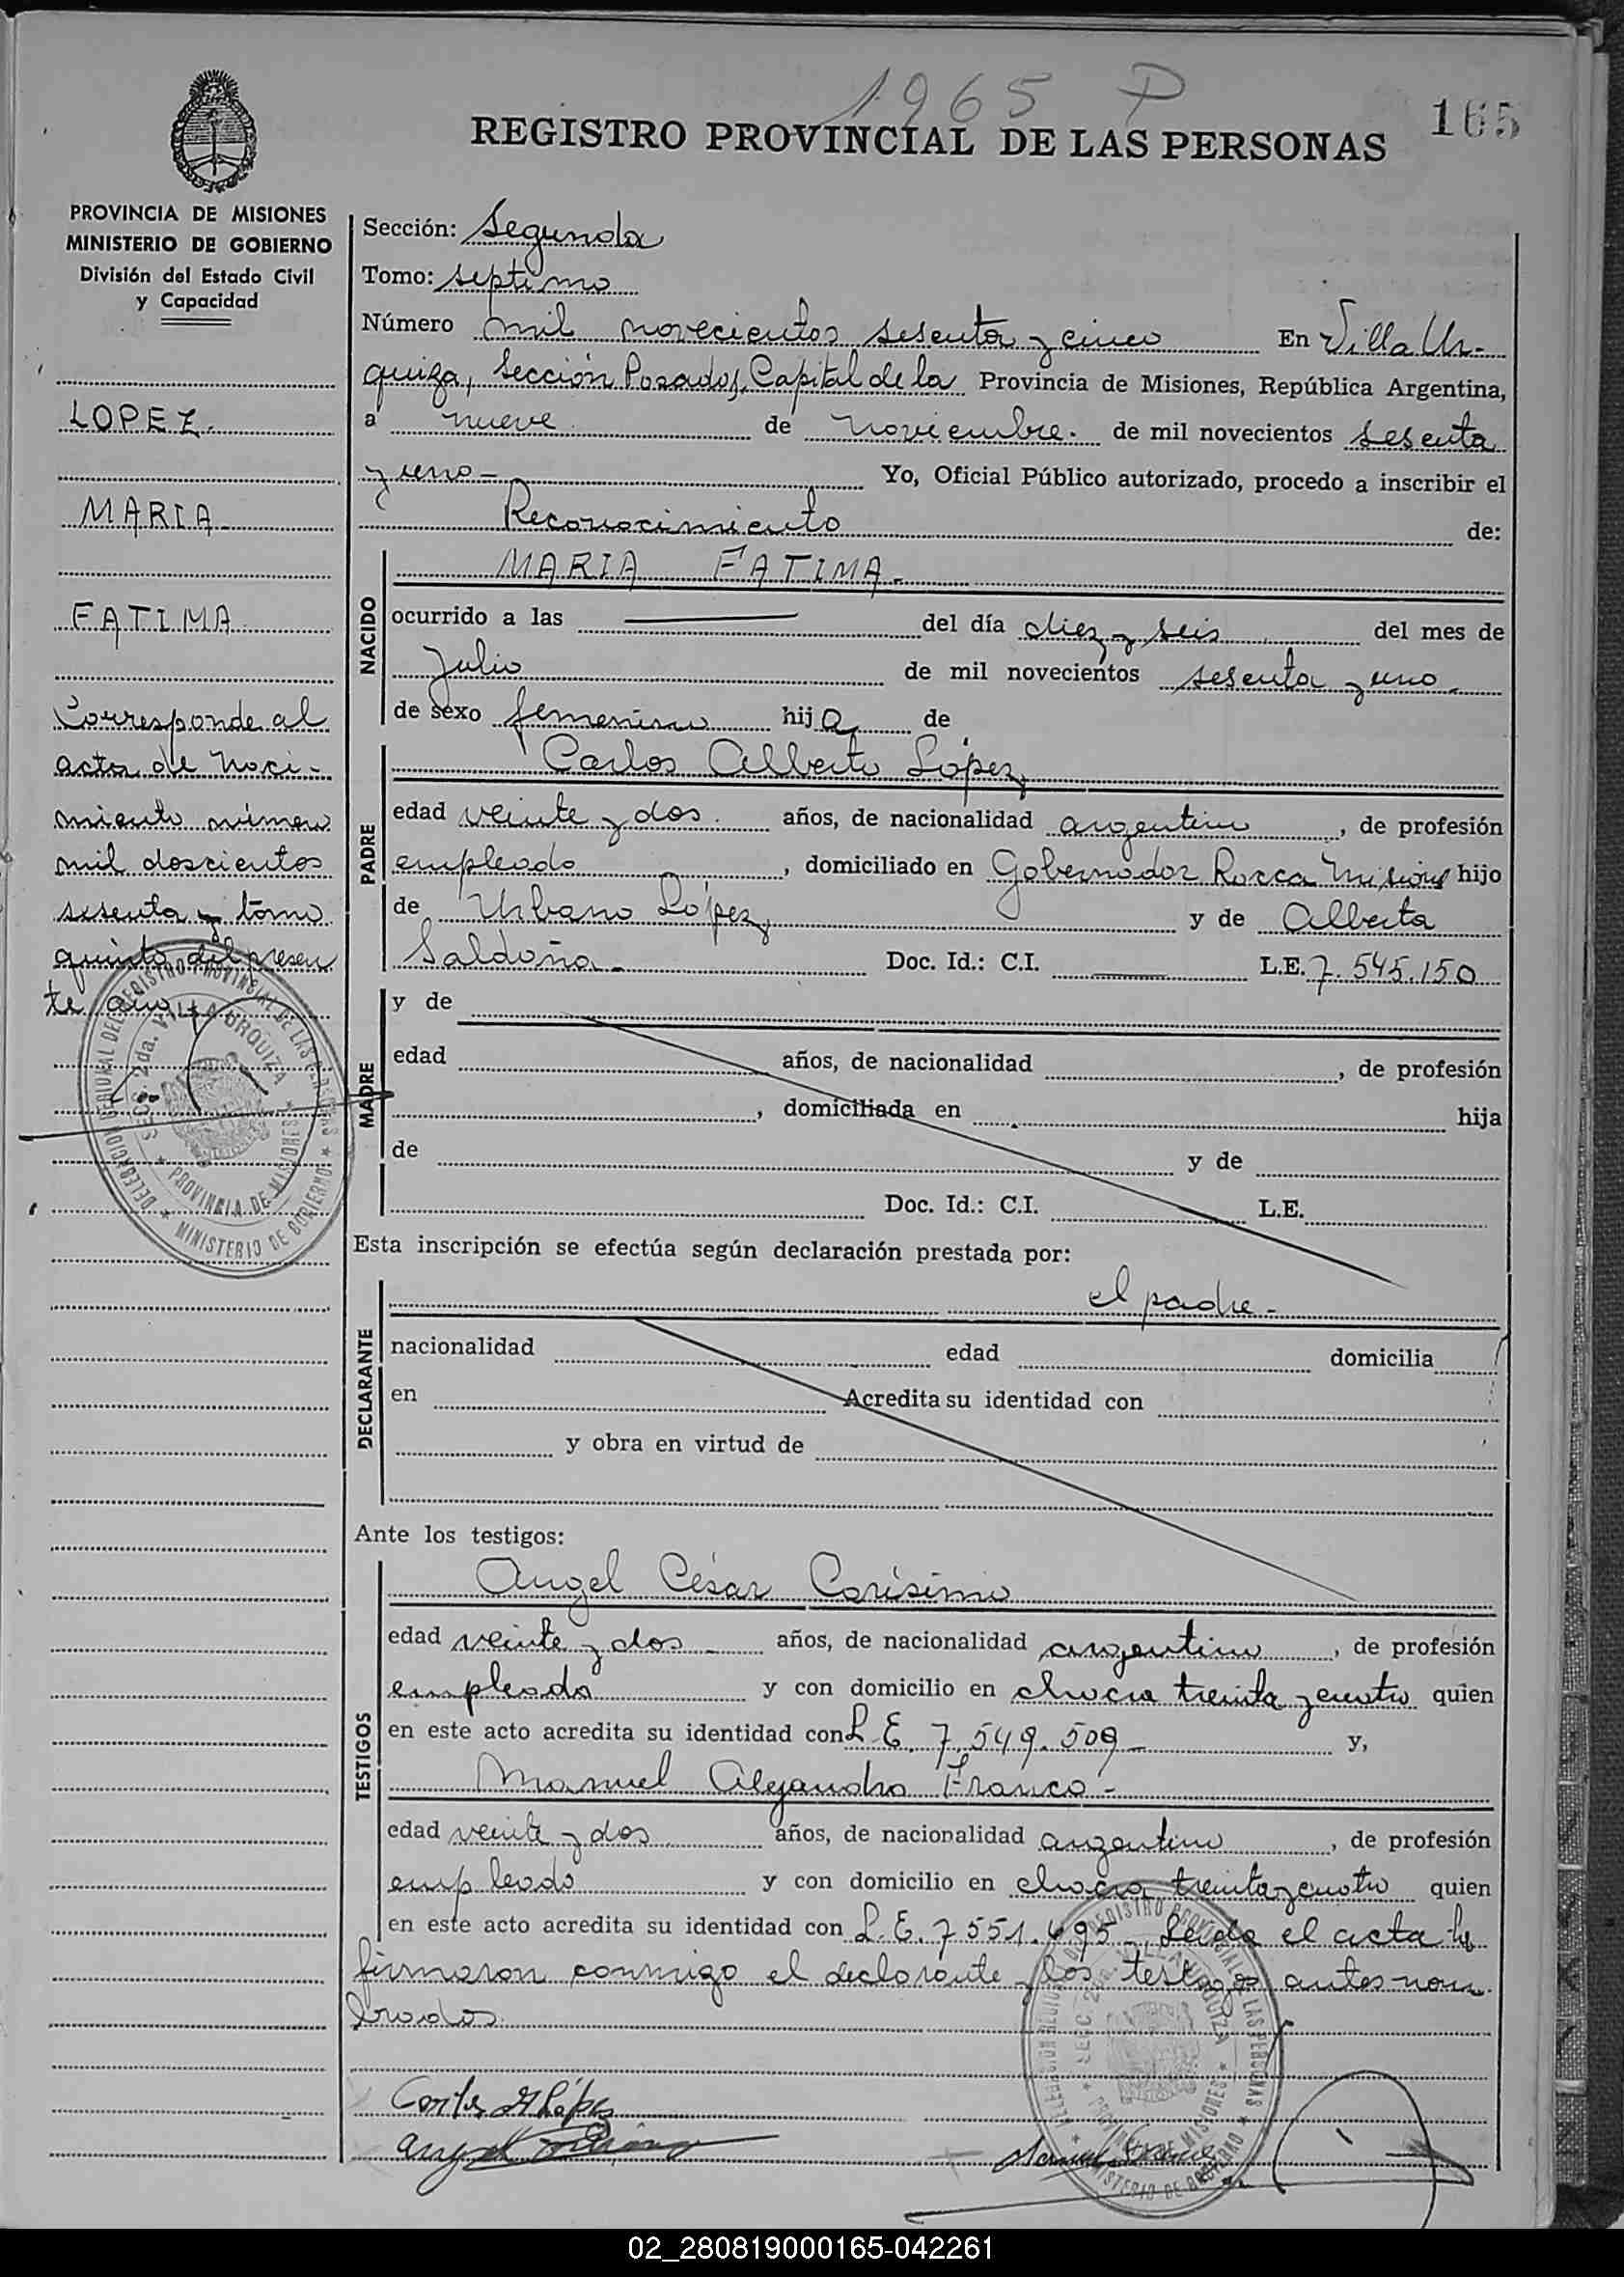 1965 P
165
REGISTRO PROVINCIAL DE LAS PERSONAS
PROVINCIA DE MISIONES
MINISTERIO DE GOBIERNO
División del Estado Civil
y Capacidad
LOPEZ.
MARIA
FATIMA
Corresponde al
acta de naci-
miento número
mil doscientos
sesenta y tomo
quinto del presen
te año
DELEGACION DEL REGISTRO PROVINCIAL DE LAS PERSONAS
SECC. 2da. VILLA URQUIZA
PROVINCIA DE MISIONES
MINISTERIO DE GOBIERNO
Sección: Segunda
Tomo: septimo
Número mil novecientos sesenta y cinco En Villa Ur-
quiza, Sección Posadas, Capital de la Provincia de Misiones, República Argentina,
a nueve de noviembre. de mil novecientos sesenta
y uno- Yo, Oficial Público autorizado, procedo a inscribir el
Reconocimiento de:
NACIDO
MARIA FATIMA-
ocurrido a las ——— del día diez y seis del mes de
Julio de mil novecientos sesenta y uno.
de sexo femenino hija de
PADRE
Carlos Alberto López
edad veinte y dos. años, de nacionalidad argentino, de profesión
empleado, domiciliado en Gobernador Rocca Misiones hijo
de Urbano López y de Alberta
Saldaña- Doc. Id.: C.I. ——— L.E. 7.545.150
MADRE
y de
edad años, de nacionalidad , de profesión
, domiciliada en hija
de y de
Doc. Id.: C.I. L.E.
Esta inscripción se efectúa según declaración prestada por:
DECLARANTE
el padre-
nacionalidad edad domicilia
en Acredita su identidad con
y obra en virtud de
Ante los testigos:
TESTIGOS
Angel César Carísimo
edad veinte y dos- años, de nacionalidad argentino, de profesión
empleado y con domicilio en chacra treinta y cuatro quien
en este acto acredita su identidad con L.E. 7.549.509- y,
Manuel Alejandro Franco-
edad veinte y dos años, de nacionalidad argentino, de profesión
empleado y con domicilio en chacra treinta y cuatro quien
en este acto acredita su identidad con L.E. 7551.695- Leida el acta la
firmaron conmigo el declarante y los testigos antes nom
brados
SECC. 2da. VILLA URQUIZA
PROVINCIA DE MISIONES
MINISTERIO DE GOBIERNO
Carlos A López
Manuel Franco
02_280819000165-042261